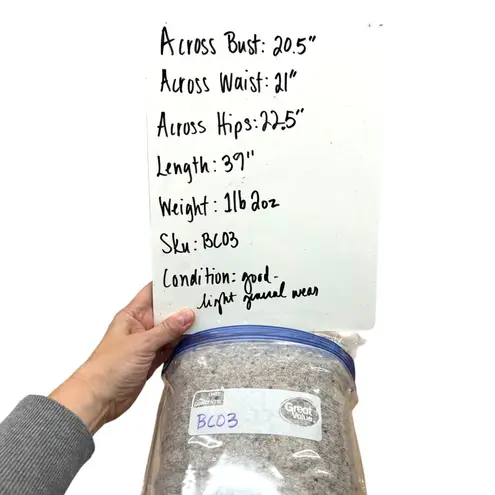 Across Bust: 20.5"
Across Waist: 21"
Across Hips: 22.5"
Length: 39"
Weight: 1lb 2oz
Sku: BC03
Condition: good-
light general wear
BC03
Great Value